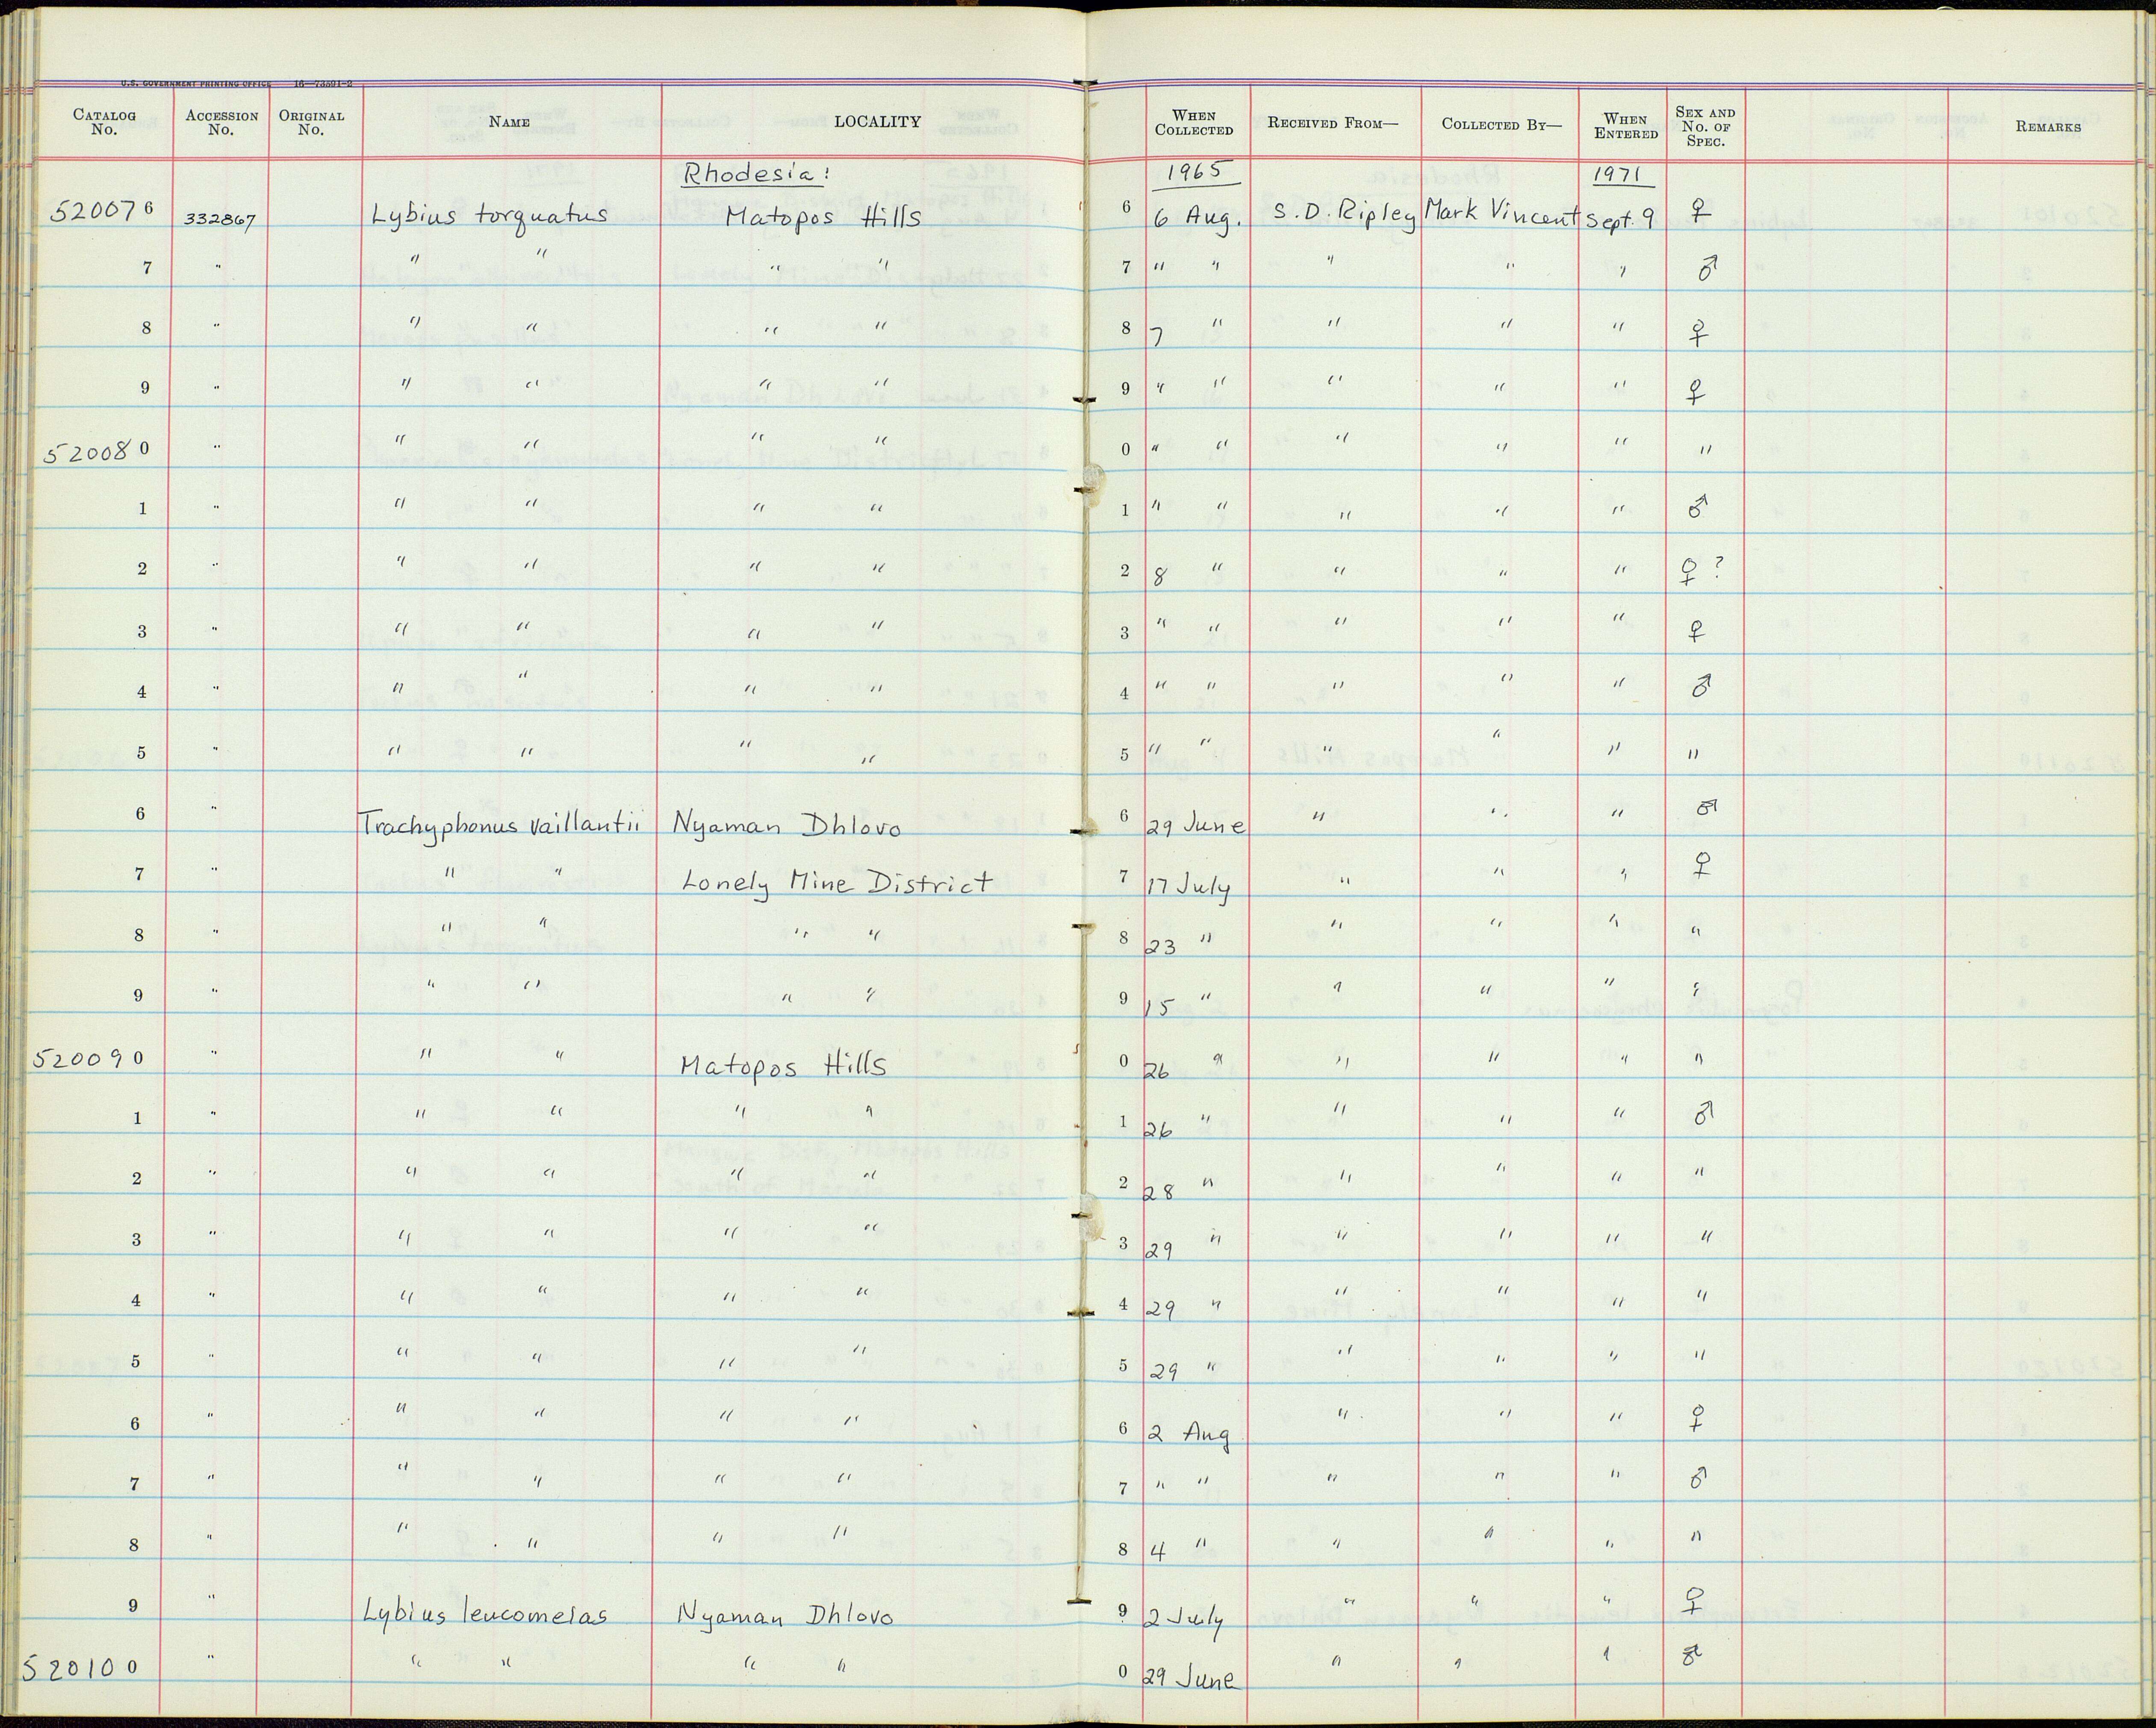 U.S. GOVERNMENT PRINTING OFFICE 16—73591-2
CATALOG No. ACCESSION No. ORIGINAL No. NAME LOCALITY WHEN COLLECTED RECEIVED FROM— COLLECTED BY— WHEN ENTERED SEX AND No. OF SPEC. REMARKS
Rhodesia: 1965 1971
520076 332867 Lybius torquatus Matopos Hills 6 6 Aug. S. D. Ripley Mark Vincent Sept. 9 ♀
7 " " " " " 7 " " " " " ♂
8 " " " " " 8 7 " " " " ♀
9 " " " " " 9 " " " " " ♀
520080 " " " " " 0 " " " " " "
1 " " " " " 1 " " " " " ♂
2 " " " " " 2 8 " " " " ♀ ?
3 " " " " " 3 " " " " " ♀
4 " " " " " 4 " " " " " ♂
5 " " " " " 5 " " " " " "
6 " Trachyphonus vaillantii Nyaman Dhlovo 6 29 June " " " ♂
7 " " " Lonely Mine District 7 17 July " " " ♀
8 " " " " " 8 23 " " " " "
9 " " " " " 9 15 " " " " "
520090 " " " Matopos Hills 0 26 " " " " "
1 " " " " " 1 26 " " " " ♂
2 " " " " " 2 28 " " " " "
3 " " " " " 3 29 " " " " "
4 " " " " " 4 29 " " " " "
5 " " " " " 5 29 " " " " "
6 " " " " " 6 2 Aug " " " ♀
7 " " " " " 7 " " " " " ♂
8 " " " " " 8 4 " " " " "
9 " Lybius leucomelas Nyaman Dhlovo 9 2 July " " " ♀
520100 " " " " " 0 29 June " " " ♂